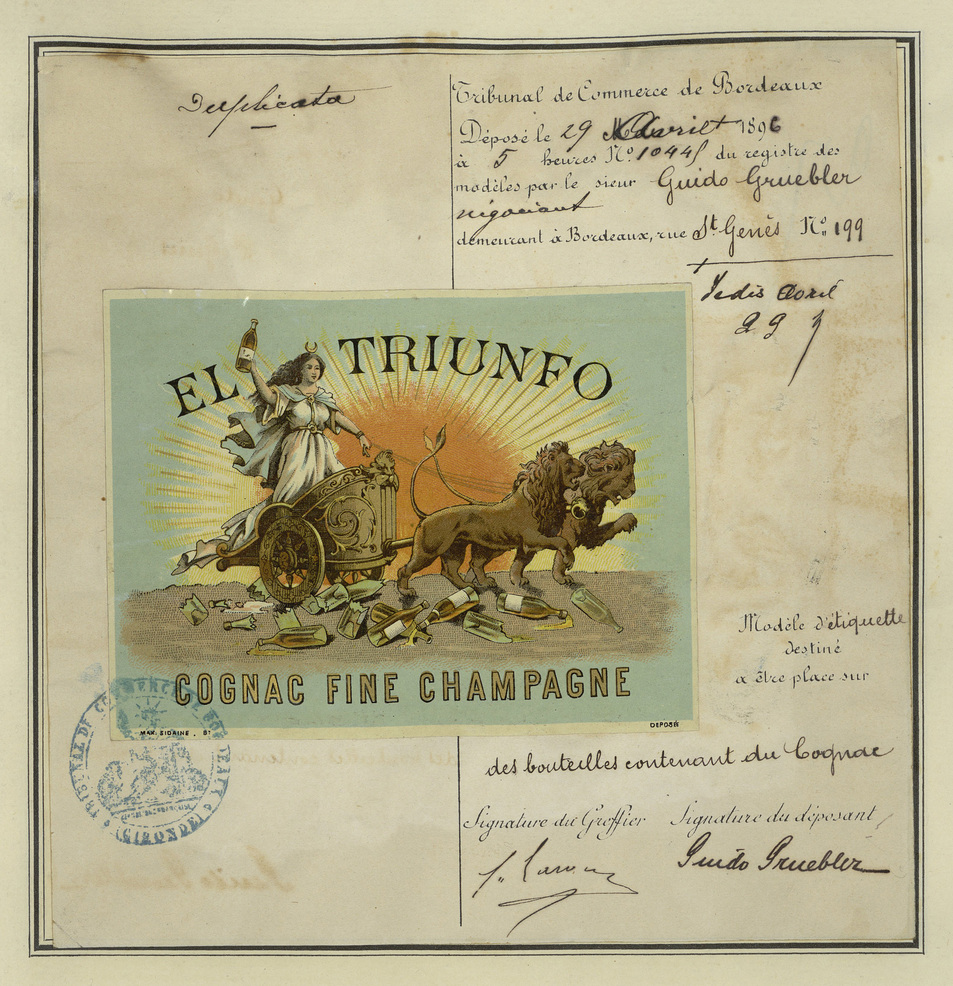 Duplicata
Tribunal de Commerce de Bordeaux
Déposé le 29 Avril 1896
à 5 heures No. 10445 du registre des
modèles par le sieur Guido Gruebler
négociant
demeurant à Bordeaux, rue St Genès No. 199
avril
29
EL TRIUNFO
COGNAC FINE CHAMPAGNE
MAX. SIDAINE, Bx
DEPOSÉ
Modèle d'étiquette
destiné
a être place sur
des bouteilles contenant du Cognac
Signature du Greffier Signature du déposant
Guido Gruebler
TRIBUNAL DE COMMERCE DE BORDEAUX
(GIRONDE)